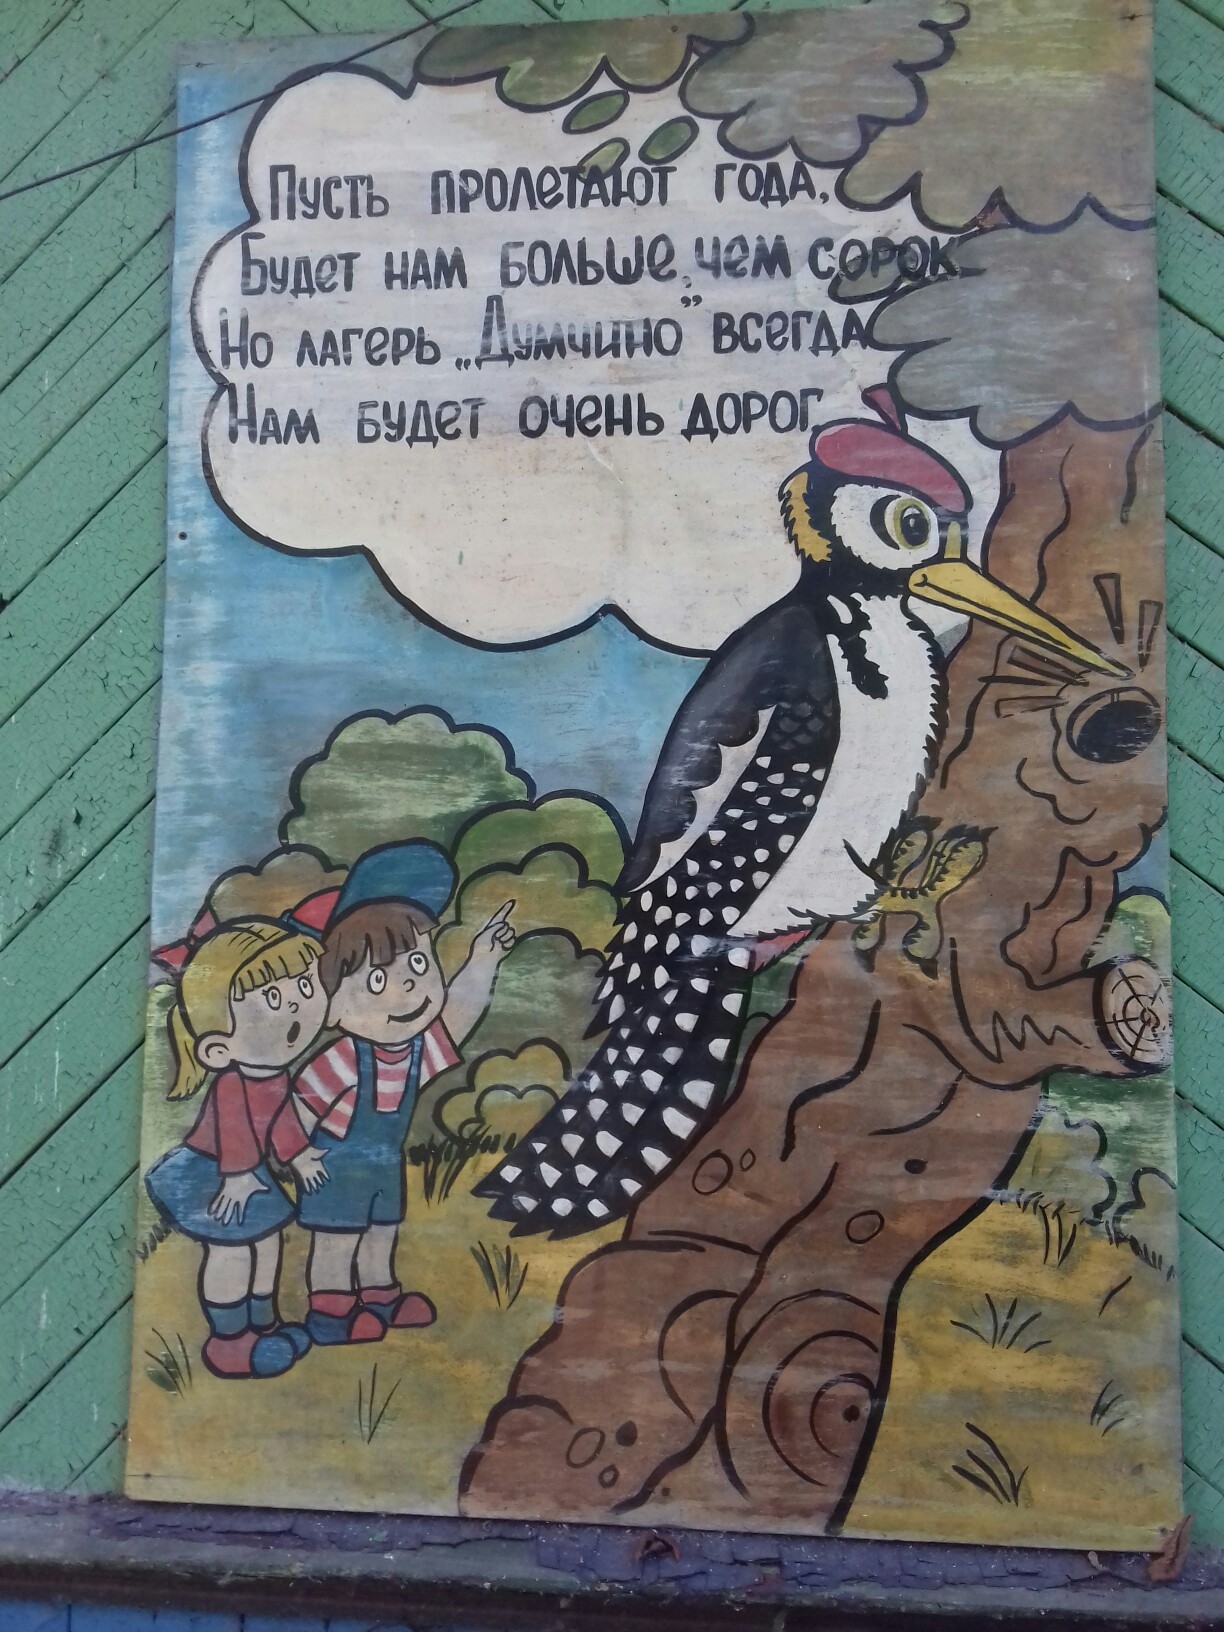 Пусть пролетают года,
Будет нам больше, чем сорок
Но лагерь „Думчино” всегда
Нам будет очень дорог.